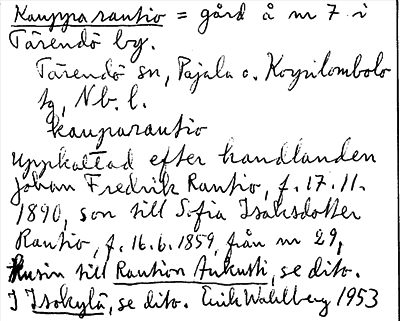 Kaupparautio = gård å nr 7 i
Tärendö by.
Tärendö sn, Pajala o. Korpilombolo
tg, Nb. l.
kauparautio
Uppkallad efter handlanden
Johan Fredrik Rautio, f. 17.11.
1890, son till Sofia Isaksdotter
Rautio, f. 16.6.1859, från nr 29,
Kusin till Raution Aukusti, se dito.
I Isokylä, se dito. Erik Wahlberg 1953